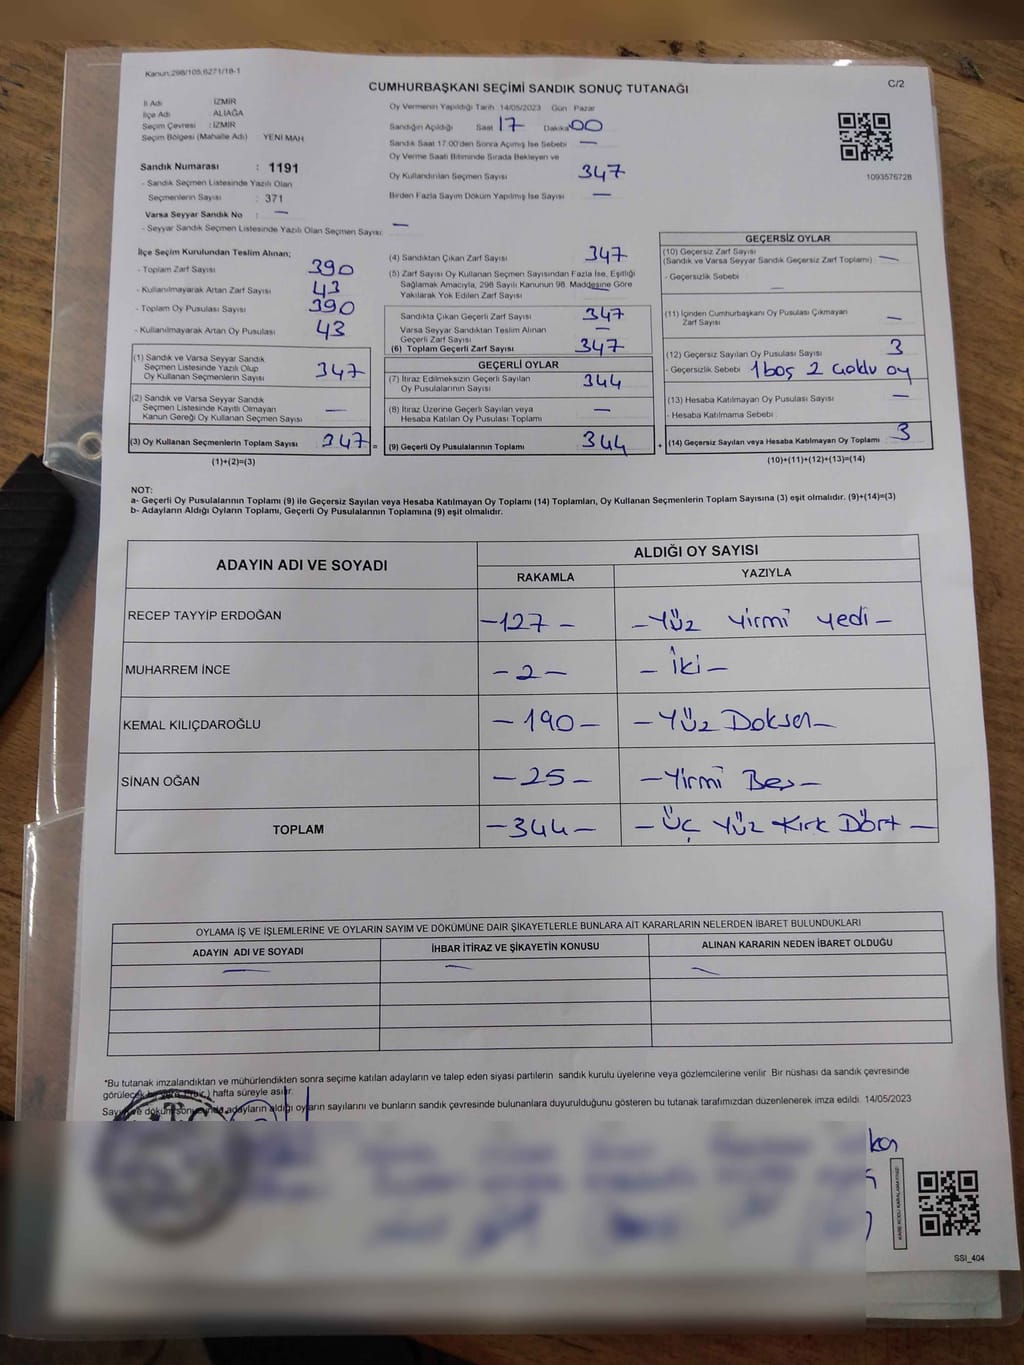 Kanun:298/105,6271/18-1
CUMHURBAŞKANI SEÇİMİ SANDIK SONUÇ TUTANAĞI
C/2
İl Adı : İZMİR
İlçe Adı : ALİAĞA
Seçim Çevresi : İZMİR
Seçim Bölgesi (Mahalle Adı) YENİ MAH
Sandık Numarası : 1191
- Sandık Seçmen Listesinde Yazılı Olan
Seçmenlerin Sayısı : 371
Varsa Seyyar Sandık No : —
- Seyyar Sandık Seçmen Listesinde Yazılı Olan Seçmen Sayısı: —
Oy Vermenin Yapıldığı Tarih 14/05/2023 Gün : Pazar
Sandığın Açıldığı Saat 17 Dakika 00
Sandık Saat 17:00'den Sonra Açımış İse Sebebi —
Oy Verme Saati Bitiminde Sırada Bekleyen ve
Oy Kullandırılan Seçmen Sayısı 347
Birden Fazla Sayım Döküm Yapılmış İse Sayısı —
1093576728
İlçe Seçim Kurulundan Teslim Alınan;
- Toplam Zarf Sayısı 390
- Kullanılmayarak Artan Zarf Sayısı 43
- Toplam Oy Pusulası Sayısı 390
- Kullanılmayarak Artan Oy Pusulası 43
(1) Sandık ve Varsa Seyyar Sandık
Seçmen Listesinde Yazılı Olup
Oy Kullanan Seçmenlerin Sayısı 347
(2) Sandık ve Varsa Seyyar Sandık
Seçmen Listesinde Kayıtlı Olmayan
Kanun Gereği Oy Kullanan Seçmen Sayısı —
(3) Oy Kullanan Seçmenlerin Toplam Sayısı 347 =
(1)+(2)=(3)
(4) Sandıktan Çıkan Zarf Sayısı 347
(5) Zarf Sayısı Oy Kullanan Seçmen Sayısından Fazla İse, Eşitliği
Sağlamak Amacıyla, 298 Sayılı Kanunun 98. Maddesine Göre
Yakılarak Yok Edilen Zarf Sayısı —
Sandıkta Çıkan Geçerli Zarf Sayısı 347
Varsa Seyyar Sandıktan Teslim Alınan
Geçerli Zarf Sayısı —
(6) Toplam Geçerli Zarf Sayısı 347
GEÇERLİ OYLAR
(7) İtiraz Edilmeksizin Geçerli Sayılan
Oy Pusulalarının Sayısı 344
(8) İtiraz Üzerine Geçerli Sayılan veya
Hesaba Katılan Oy Pusulası Toplamı —
(9) Geçerli Oy Pusulalarının Toplamı 344 +
GEÇERSİZ OYLAR
(10) Geçersiz Zarf Sayısı
(Sandık ve Varsa Seyyar Sandık Geçersiz Zarf Toplamı) —
- Geçersizlik Sebebi :
—
(11) İçinden Cumhurbaşkanı Oy Pusulası Çıkmayan
Zarf Sayısı —
(12) Geçersiz Sayılan Oy Pusulası Sayısı 3
- Geçersizlik Sebebi 1 boş 2 Çoklu oy
(13) Hesaba Katılmayan Oy Pusulası Sayısı —
- Hesaba Katılmama Sebebi :
(14) Geçersiz Sayılan veya Hesaba Katılmayan Oy Toplamı 3
(10)+(11)+(12)+(13)=(14)
NOT:
a- Geçerli Oy Pusulalarının Toplamı (9) ile Geçersiz Sayılan veya Hesaba Katılmayan Oy Toplamı (14) Toplamları, Oy Kullanan Seçmenlerin Toplam Sayısına (3) eşit olmalıdır. (9)+(14)=(3)
b- Adayların Aldığı Oyların Toplamı, Geçerli Oy Pusulalarının Toplamına (9) eşit olmalıdır.
ADAYIN ADI VE SOYADI
ALDIĞI OY SAYISI
RAKAMLA YAZIYLA
RECEP TAYYİP ERDOĞAN -127- -Yüz Yirmi Yedi-
MUHARREM İNCE -2- -İki-
KEMAL KILIÇDAROĞLU -190- -Yüz Doksan-
SİNAN OĞAN -25- -Yirmi Beş-
TOPLAM -344- -Üç Yüz Kırk Dört-
OYLAMA İŞ VE İŞLEMLERİNE VE OYLARIN SAYIM VE DÖKÜMÜNE DAİR ŞİKAYETLERLE BUNLARA AİT KARARLARIN NELERDEN İBARET BULUNDUKLARI
ADAYIN ADI VE SOYADI İHBAR İTİRAZ VE ŞİKAYETİN KONUSU ALINAN KARARIN NEDEN İBARET OLDUĞU
— — —
*Bu tutanak imzalandıktan ve mühürlendikten sonra seçime katılan adayların ve talep eden siyasi partilerin sandık kurulu üyelerine veya gözlemcilerine verilir. Bir nüshası da sandık çevresinde
görülecek bir yere (bir) hafta süreyle asılır.
Sayım ve döküm sonucunda adayların aldığı oyların sayılarını ve bunların sandık çevresinde bulunanlara duyurulduğunu gösteren bu tutanak tarafımızdan düzenlenerek imza edildi. 14/05/2023
SSI_404